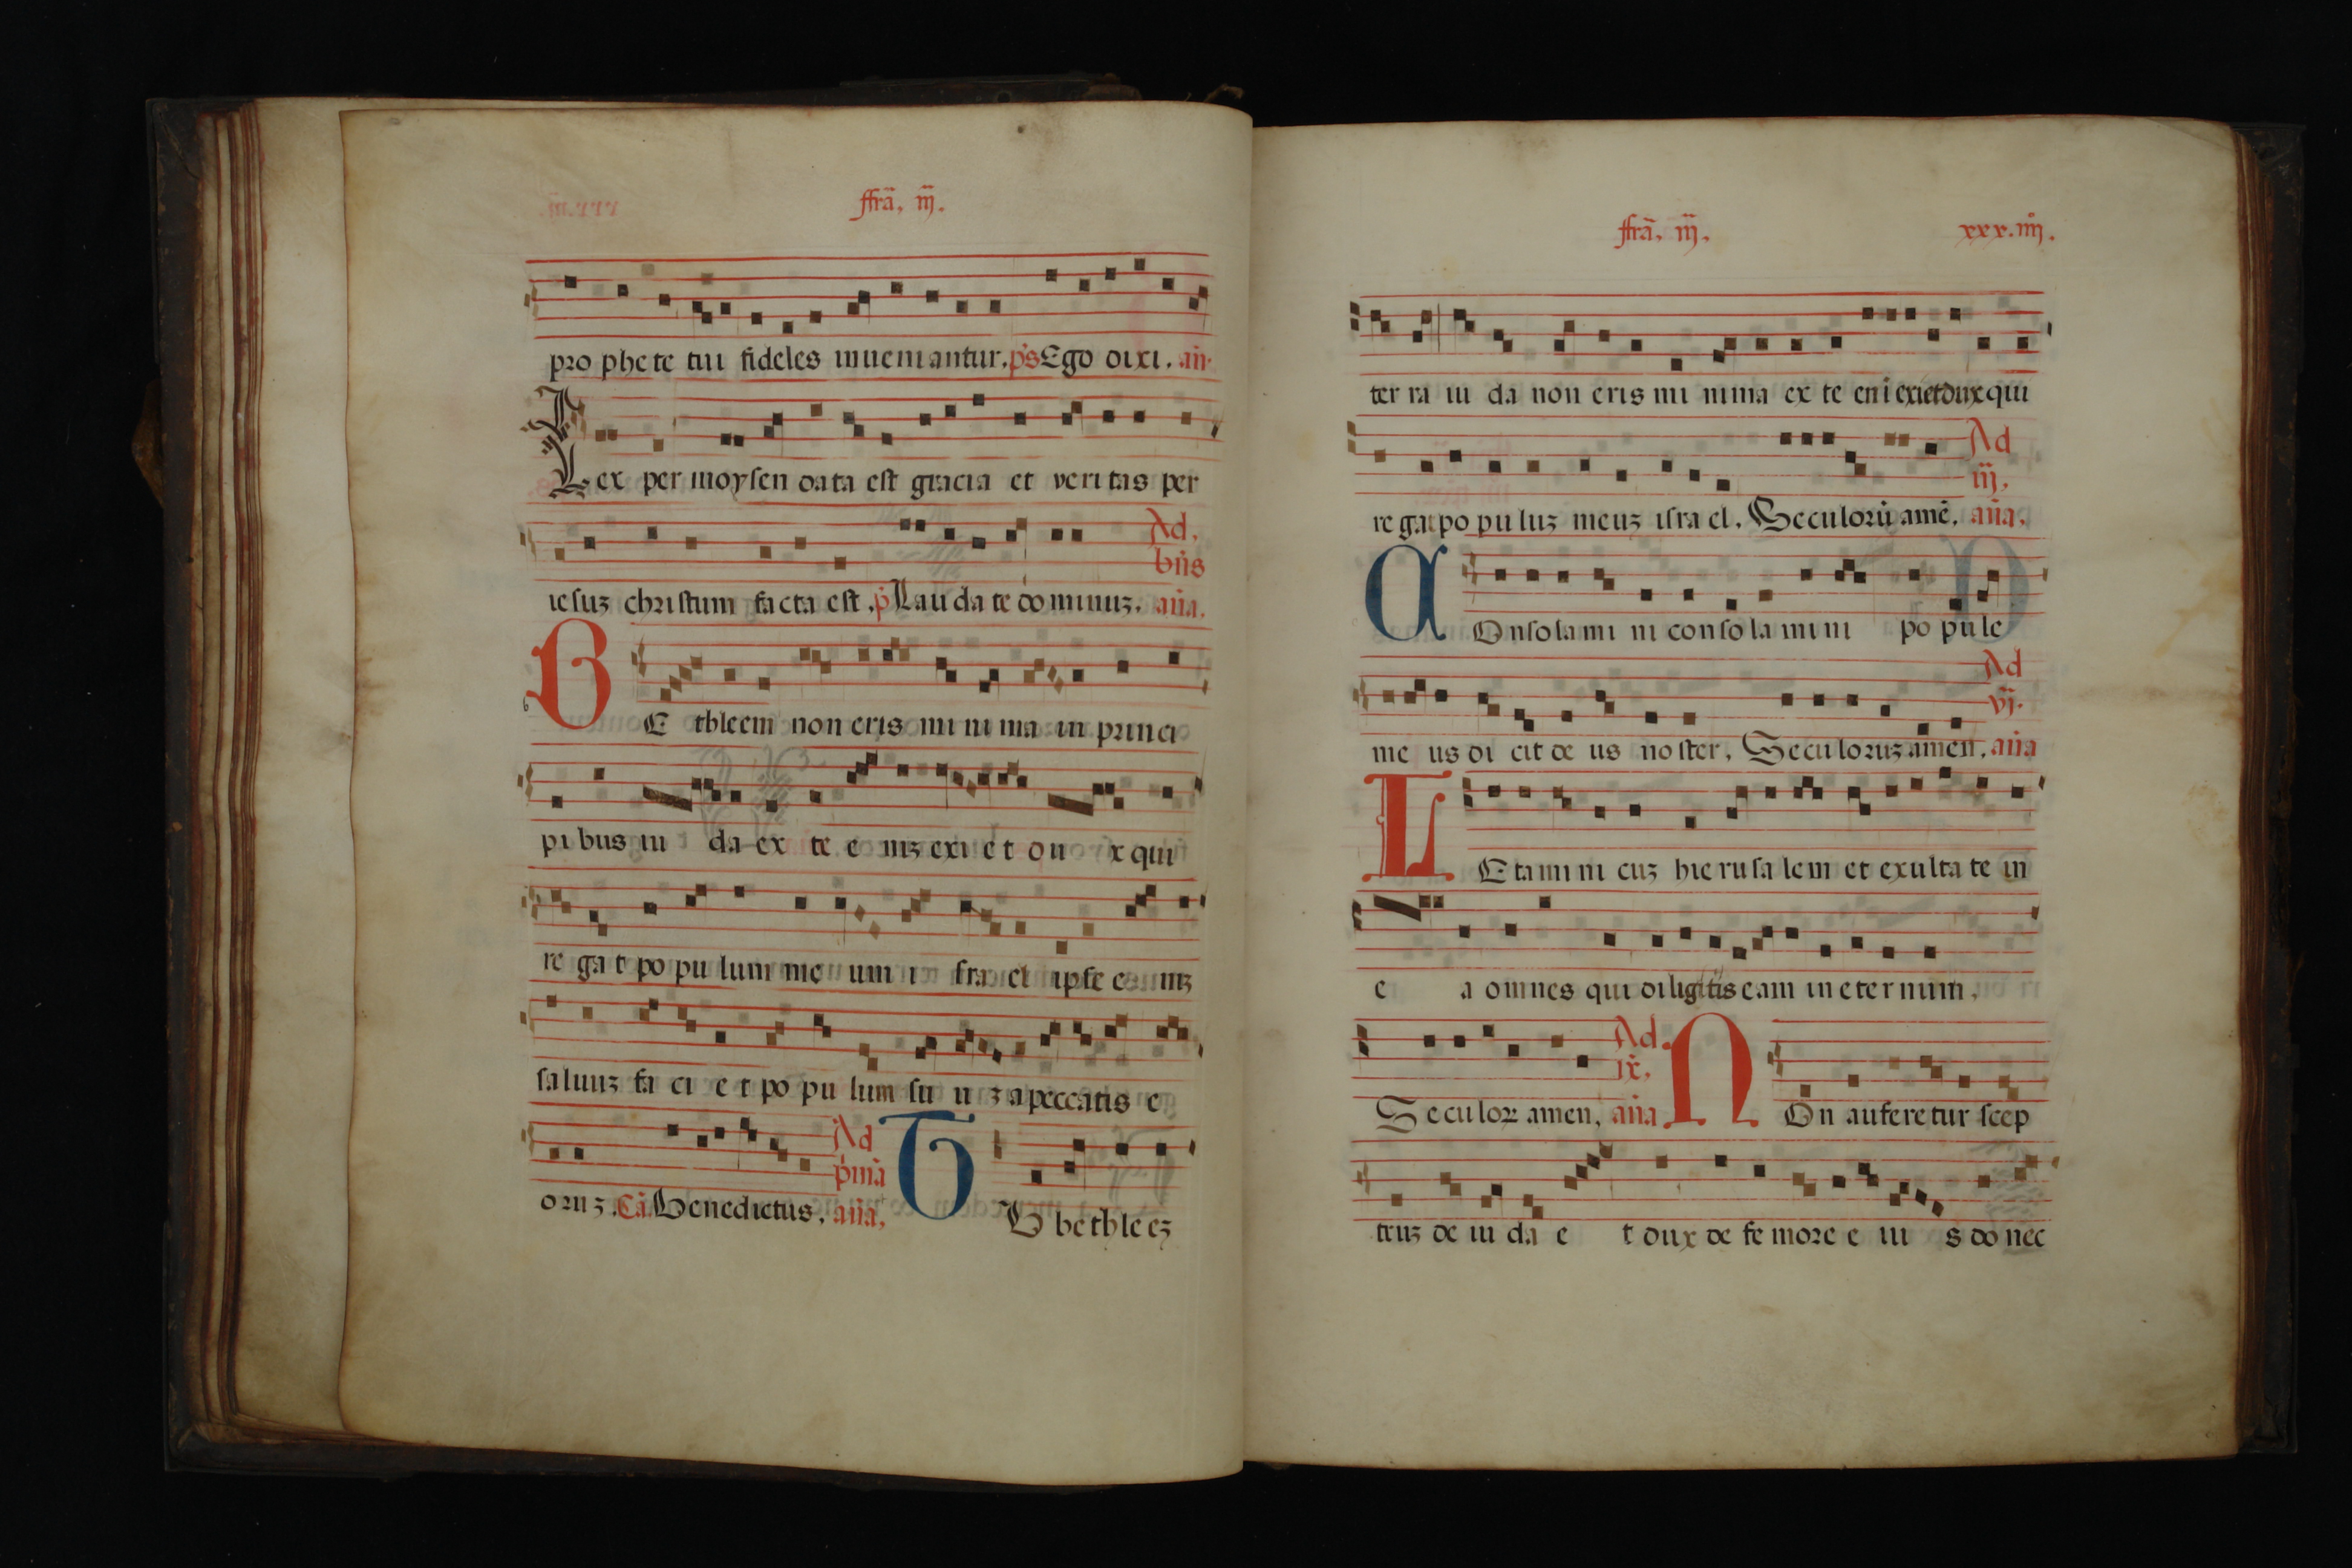 ffrã. iij.
pro phe te tui fideles inueni antur. ps Ego dixi. añ.
Lex per moysen data est gracia et veritas per
iesuz christum facta est. p̃ Lau da te do minuz. aña.
Ad.
bñs
BE thleem non eris mi ni ma in princi
pi bus iu da ex te e niz exi et du x qui
re ga t po pu lum me um i sra el ipse e niz
saluuz fa ci e t po pu lum su u z a peccatis e
oruz. Cã. Benedictus. aña.
Ad
p̃mã
TU bethleez
ffrã. iij.
xxx.iiij.
ter ra iu da non eris mi nima ex te eni exiet dux qui
re gat po pu luz meuz isra el. Seculorũ amẽ. aña.
Ad
iij.
COnsolami ni conso la mi ni po pu le
me us di cit de us noster. Seculoruz amen. aña
Ad
vj.
LEtami ni cuz hierusalem et exulta te in
e a omnes qui diligitis eam in eternum.
Seculor amen. aña
Ad.
ix.
NOn auferetur scep
truz de iu da e t dux de femore e iu s do nec